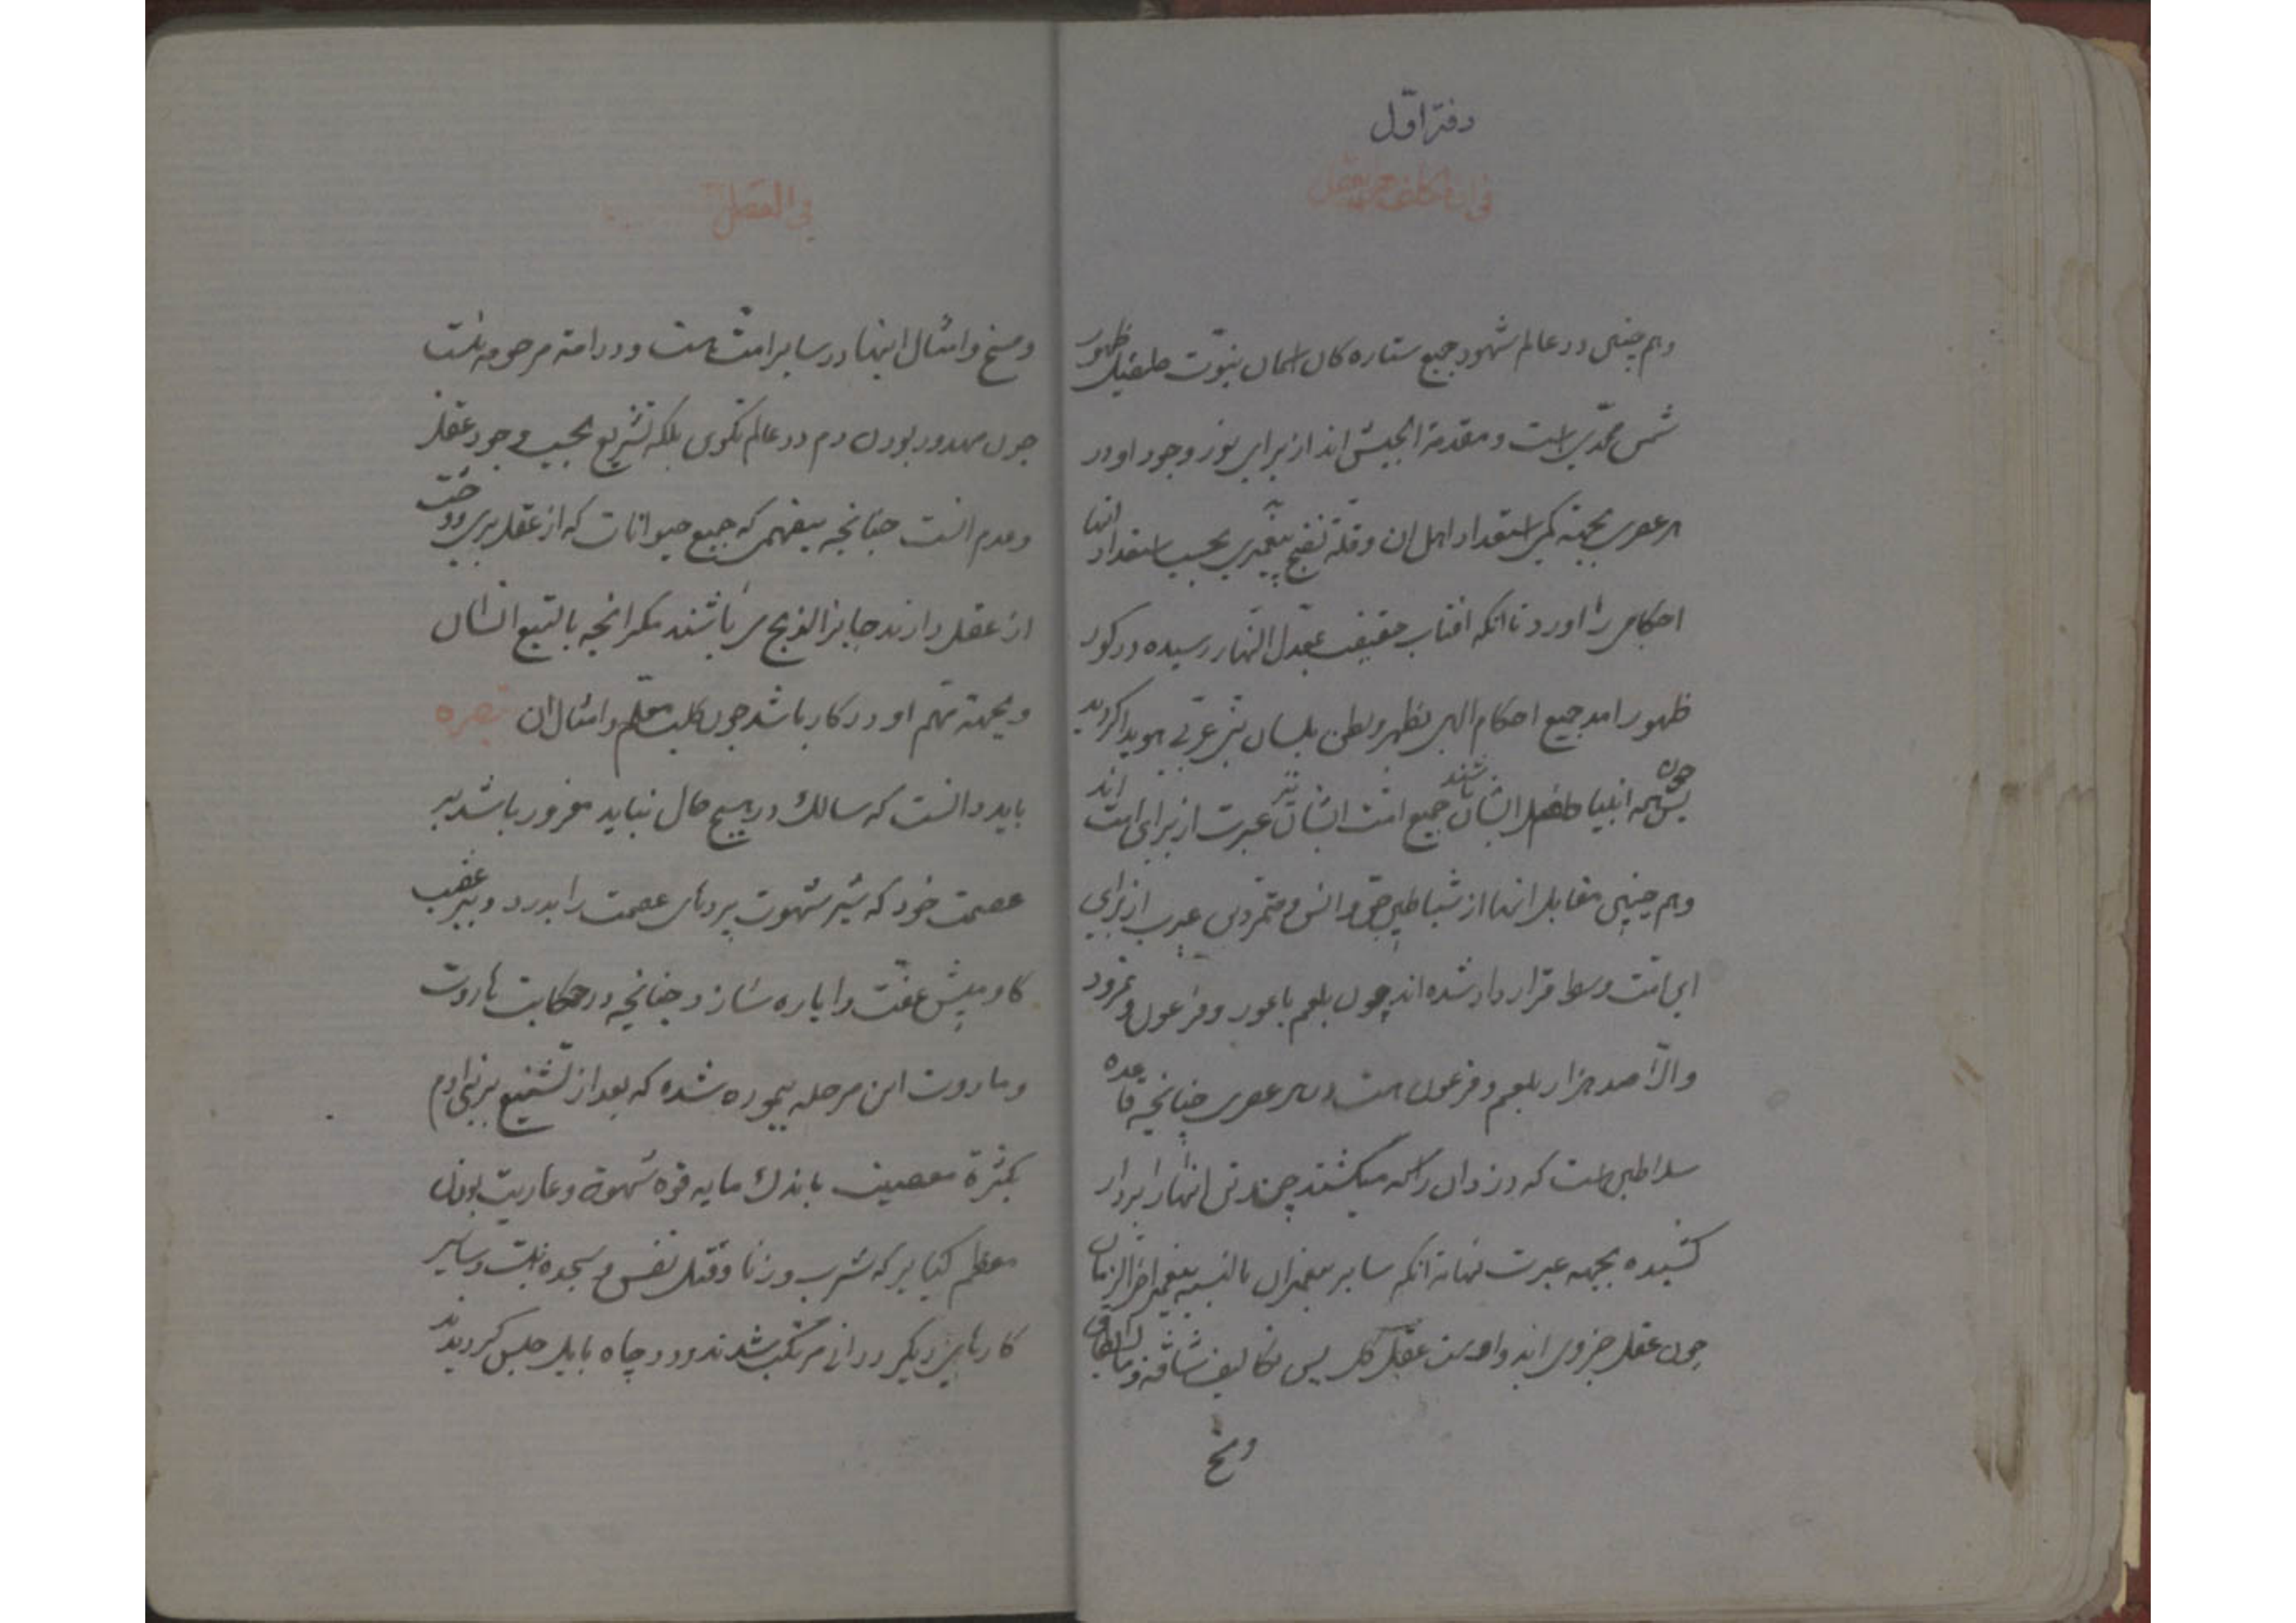 دفتر اوّل
وهم چنین در عالم شهود جمیع ستاره کان اسمان نبوّت طفیل ظهور
شمس محمّدی است و مقدمة الجیش اند از برای نور وجود او در
هر عصری بجهته کمی استعداد اهل ان وقلة نضج پیغمبری بحسب استعداد انها
احکامی را اورد تا انکه افتاب حقیقت بمعدل النهار رسیده در کور
ظهور امد جمیع احکام الهی بظهر وبطن بلسان عربی هویدا کردید
چون همه انبیا طفیل ایشان باشند جمیع امّت ایشان نیز عبرت از برای امت اند
وهم چنین مقابل انها از شیاطین جن وانس ومتمردین عبرت از برای
این امّت وسط قرار داد شده اند چون بلعم باعور وفرعون ونمرود
والّا صد هزار بلعم وفرعون است در هر عصری چنانچه قاعده
سلاطین است که دزدان را که میکشند چند تن انها را بر دار
کشیده بجهه عبرت نه انکه سایر پیغمبران بالنسبه پیغمبر اخر الزمان
چون عقل جزوی اند واوست عقل کل پس تکالیف شاقه وما لایطاق
ومسخ
فی الفصل
ومسخ وامثال اینها در سایر امّت هست ودر امة مرحومه نیست
چون مهدور بودن دم در عالم تکوین بلکه تشریع بحسب وجود عقل
وعدم انست چنانچه میفهمی که جمیع حیوانات که از عقل بری
از عقل دارند جایز الذبح می باشند مکر انچه بالتبع انسان
وبجهته مهم او در کار باشد چون کلب معلم وامثال ان تبصره
باید دانست که سالك در هیچ حال نباید مغرور باشد بر
عصمت خود که شیر شهوت پردهای عصمت را بدرد وببر غضب
کاو میش عفّت را پاره سازد چنانچه در حکایت هاروت
وماروت این مرحله پیموده شده که بعد از تشنیع بر بنی ادم
بکثرة معصیت باندك مایه قوه شهوة وعاریت بودن
معظم کبایر که شرب وزنا وقتل نفس وسجده بت وسایر
کارهای دیکر در انی مرتکب شدند ودر چاه بابل حبس کردیدند